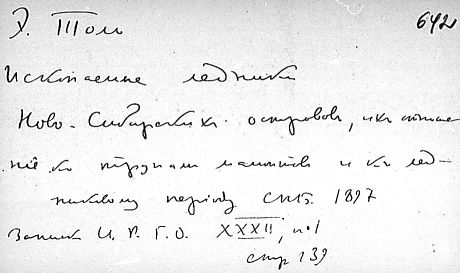 Э. Толь 642
Ископаемые ледники
Ново-Сибирских островов, их отноше
ніе к трупам мамонтов и к лед-
никовому периоду СПб. 1897
Записки И. Р. Г. О. XXXII, №1
стр 139